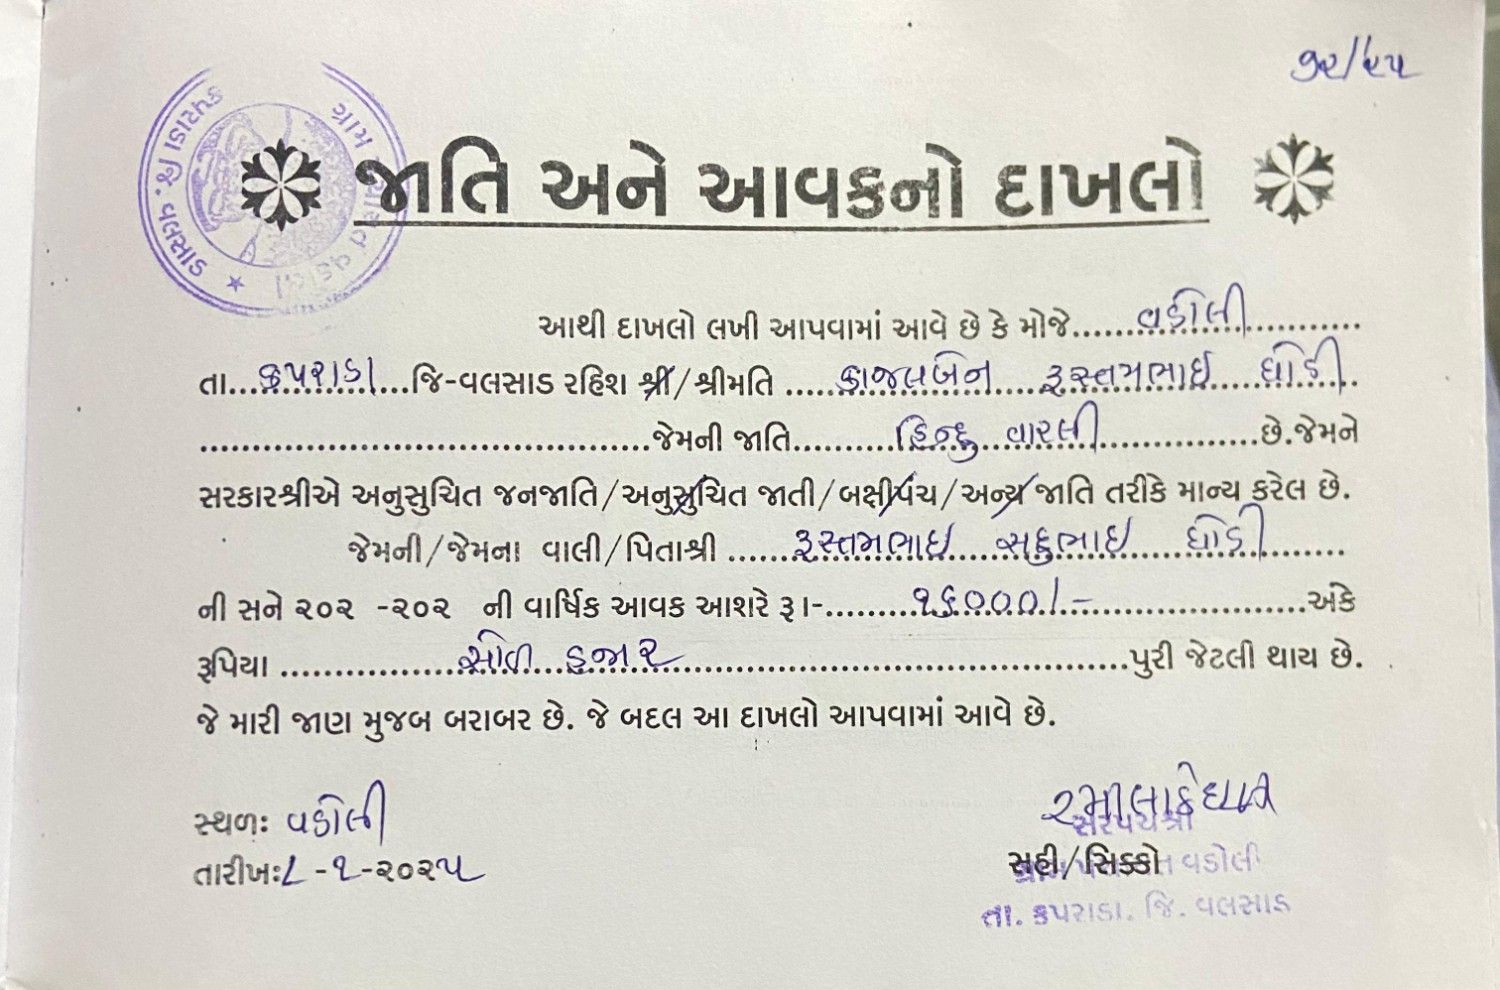 ૭૨/૨૫
ગ્રામ પંચાયત વડોલી
કપરાડા જિ. વલસાડ
જાતિ અને આવકનો દાખલો
આથી દાખલો લખી આપવામાં આવે છે કે મોજે......વડોલી..............
તા...કપરાડા...જિ-વલસાડ રહિશ શ્રી/શ્રીમતિ .....કાજલબેન.....રૂસ્તમભાઇ.....ધોડી..
...........................................જેમની જાતિ..........હિન્દુ વારલી...................છે.જેમને
સરકારશ્રીએ અનુસુચિત જનજાતિ/અનુસુચિત જાતી/બક્ષીપંચ/અન્ય જાતિ તરીકે માન્ય કરેલ છે.
જેમની/જેમના વાલી/પિતાશ્રી ......રૂસ્તમભાઇ.....સદુભાઇ.....ધોડી..........
ની સને ૨૦૨ -૨૦૨ ની વાર્ષિક આવક આશરે રૂ।-.........૧૬૦૦૦/-......................અંકે
રૂપિયા ..................સોળ હજાર...........................................પુરી જેટલી થાય છે.
જે મારી જાણ મુજબ બરાબર છે. જે બદલ આ દાખલો આપવામાં આવે છે.
સ્થળ: વડોલી
સરપંચશ્રી
તારીખ: ૮-૧-૨૦૨૫
સહી/સિક્કો
ગ્રામ પંચાયત વડોલી
તા. કપરાડા. જિ. વલસાડ